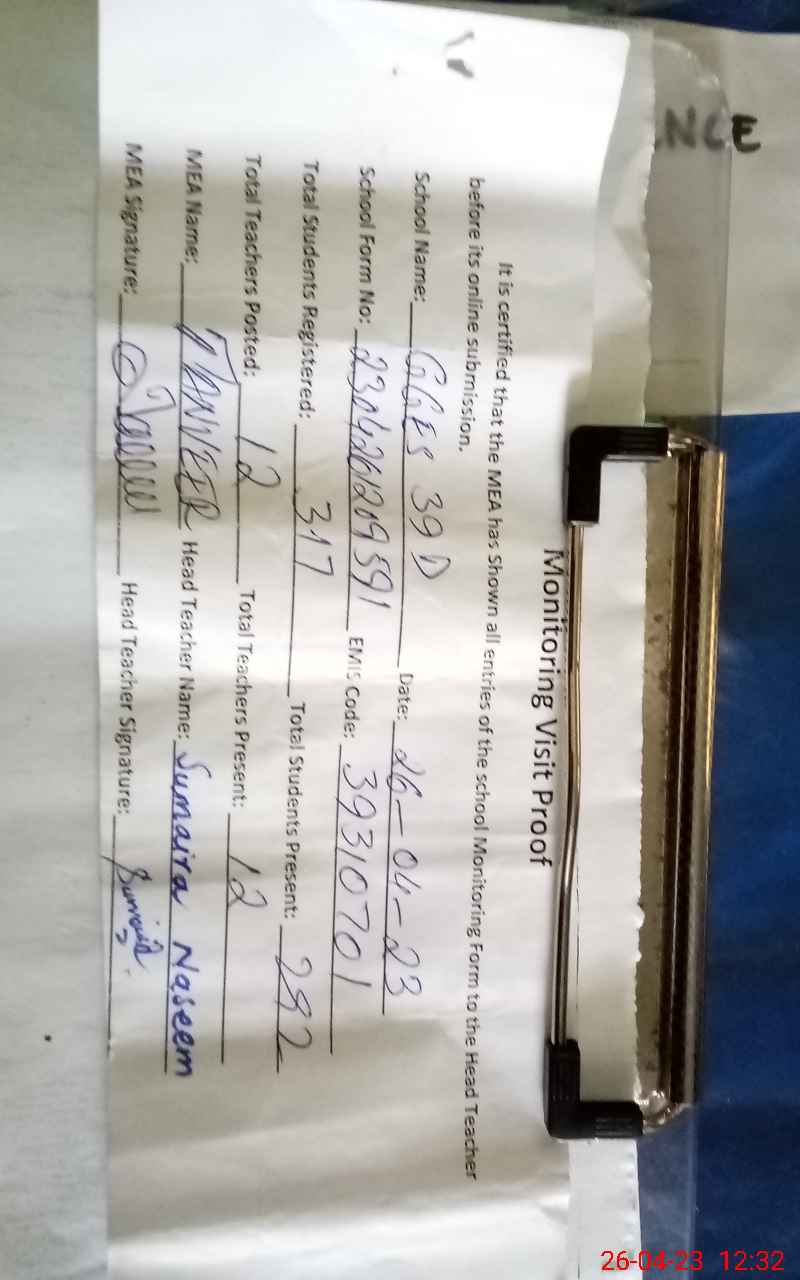 NCE
Monitoring Visit Proof
It is certified that the MEA has Shown all entries of the school Monitoring Form to the Head Teacher
before its online submission.
School Name: GGES 39 D Date: 26-04-23
School Form No: EMIS Code: 39310701
Total Students Registered: 317 Total Students Present: 292
Total Teachers Posted: 12 Total Teachers Present: 12
MEA Name: TANVEER Head Teacher Name: Sumaira Naseem
MEA Signature: Head Teacher Signature:
26-04-23 12:32